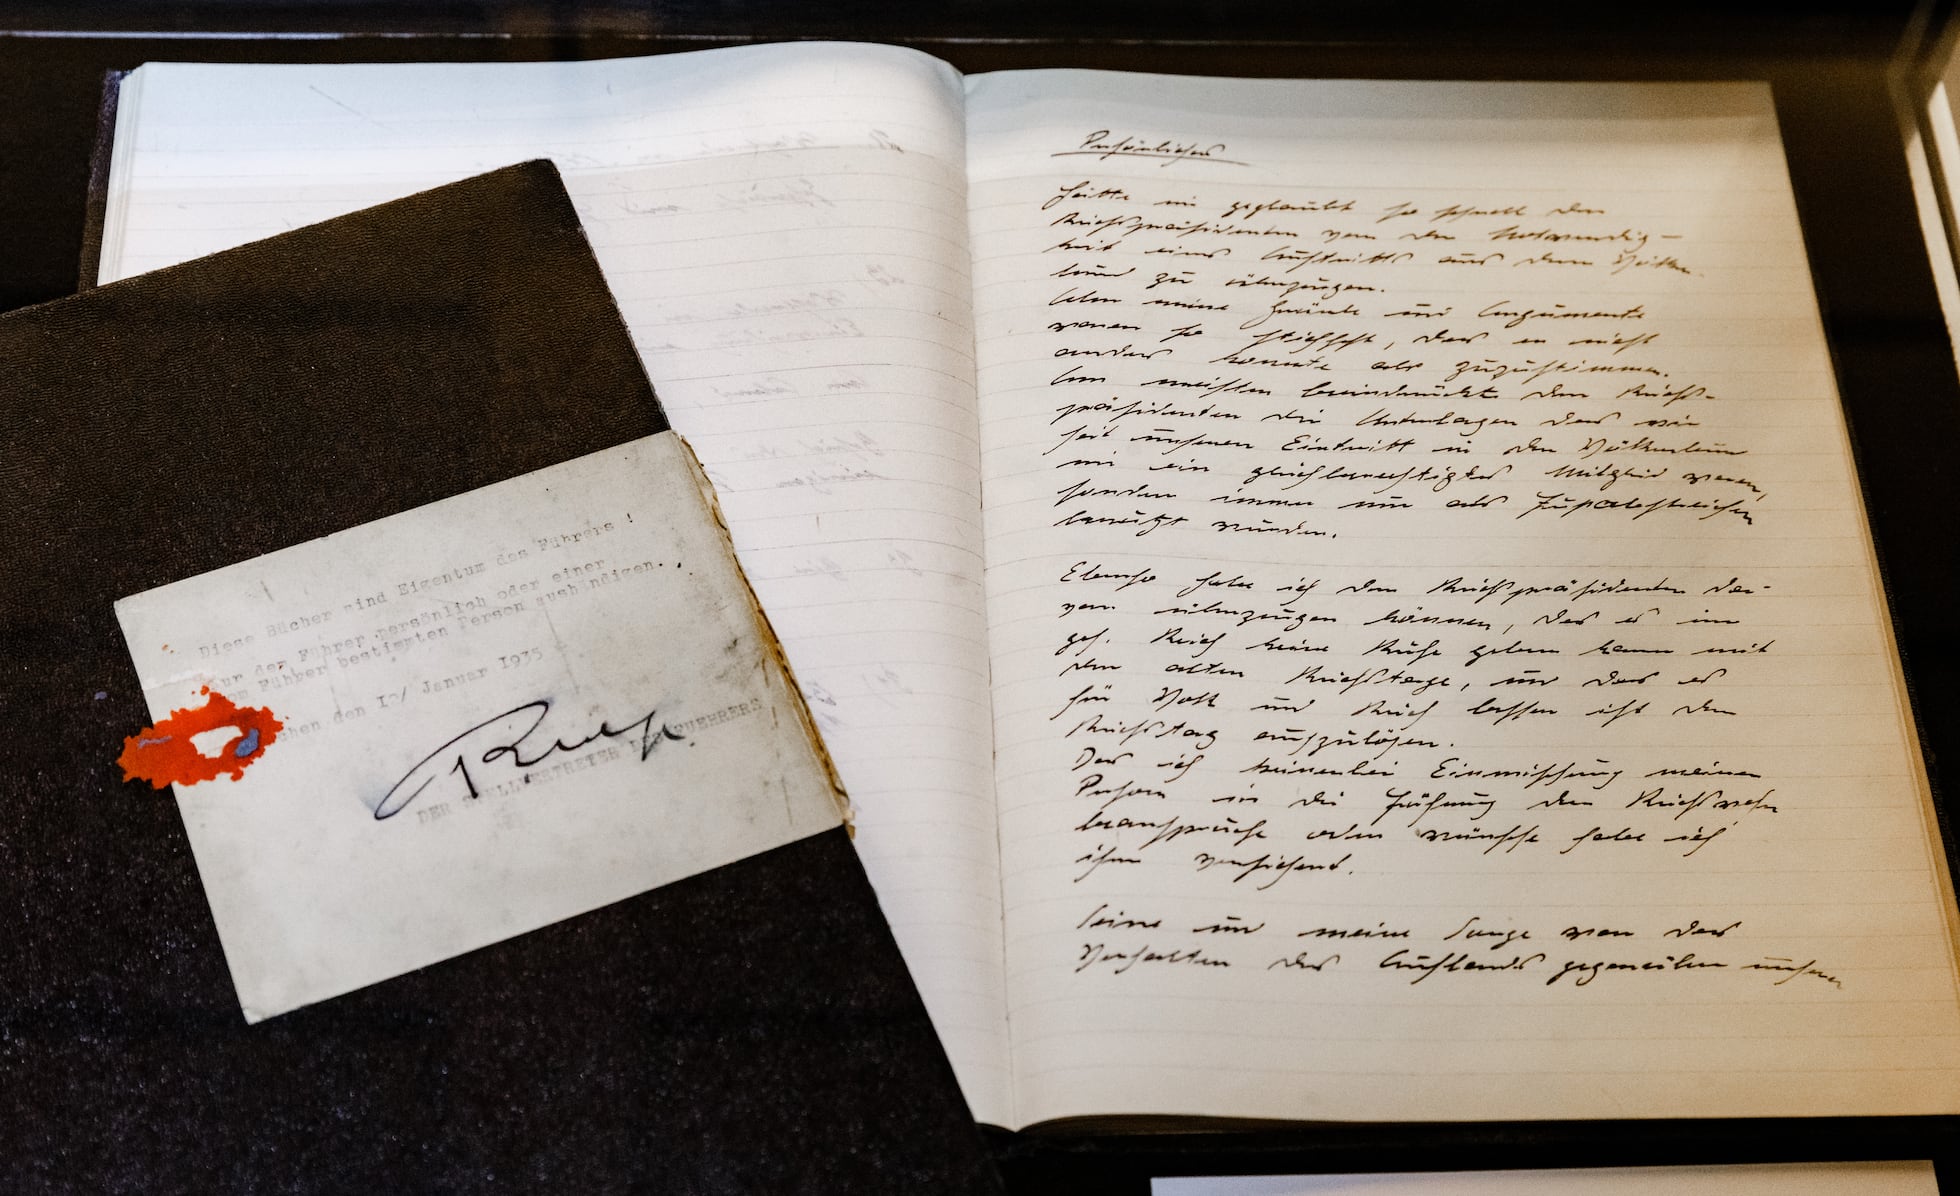 Diese Bücher sind Eigentum des Führers !
Nur dem Führer persönlich oder einer
vom Führer bestimmten Person aushändigen.
den 10/ Januar 1935
DER STELLVERTRETER DES FUEHRERS
Persönliches
Hätte nie geglaubt so schnell den
Reichspräsidenten von der Notwendig-
keit eines Austritts aus dem Völker-
bund zu überzeugen.
Aber meine Gründe und Argumente
waren so stichfest, das er nicht
anders konnte als zuzustimmen.
Am meisten beeindruckte den Reichs-
präsidenten die Unterlagen das wir
seit unseren Eintritt in den Völkerbund
nie ein gleichberechtigtes Mitglied waren,
sondern immer nur als
benützt wurden.
Ebenso habe ich den Reichspräsidenten da-
von überzeugen können, das es im
ges. Reich keine Ruhe geben kann mit
dem alten Reichstage, und das es
für Volk und Reich besser ist den
Reichstag aufzulösen.
Das ich keinerlei Einmischung meiner
Person in die Führung der Reichswehr
beanspruche oder wünsche habe ich
ihm versichert.
Seine und meine Sorge war das
Verhalten des Auslands gegenüber unserer